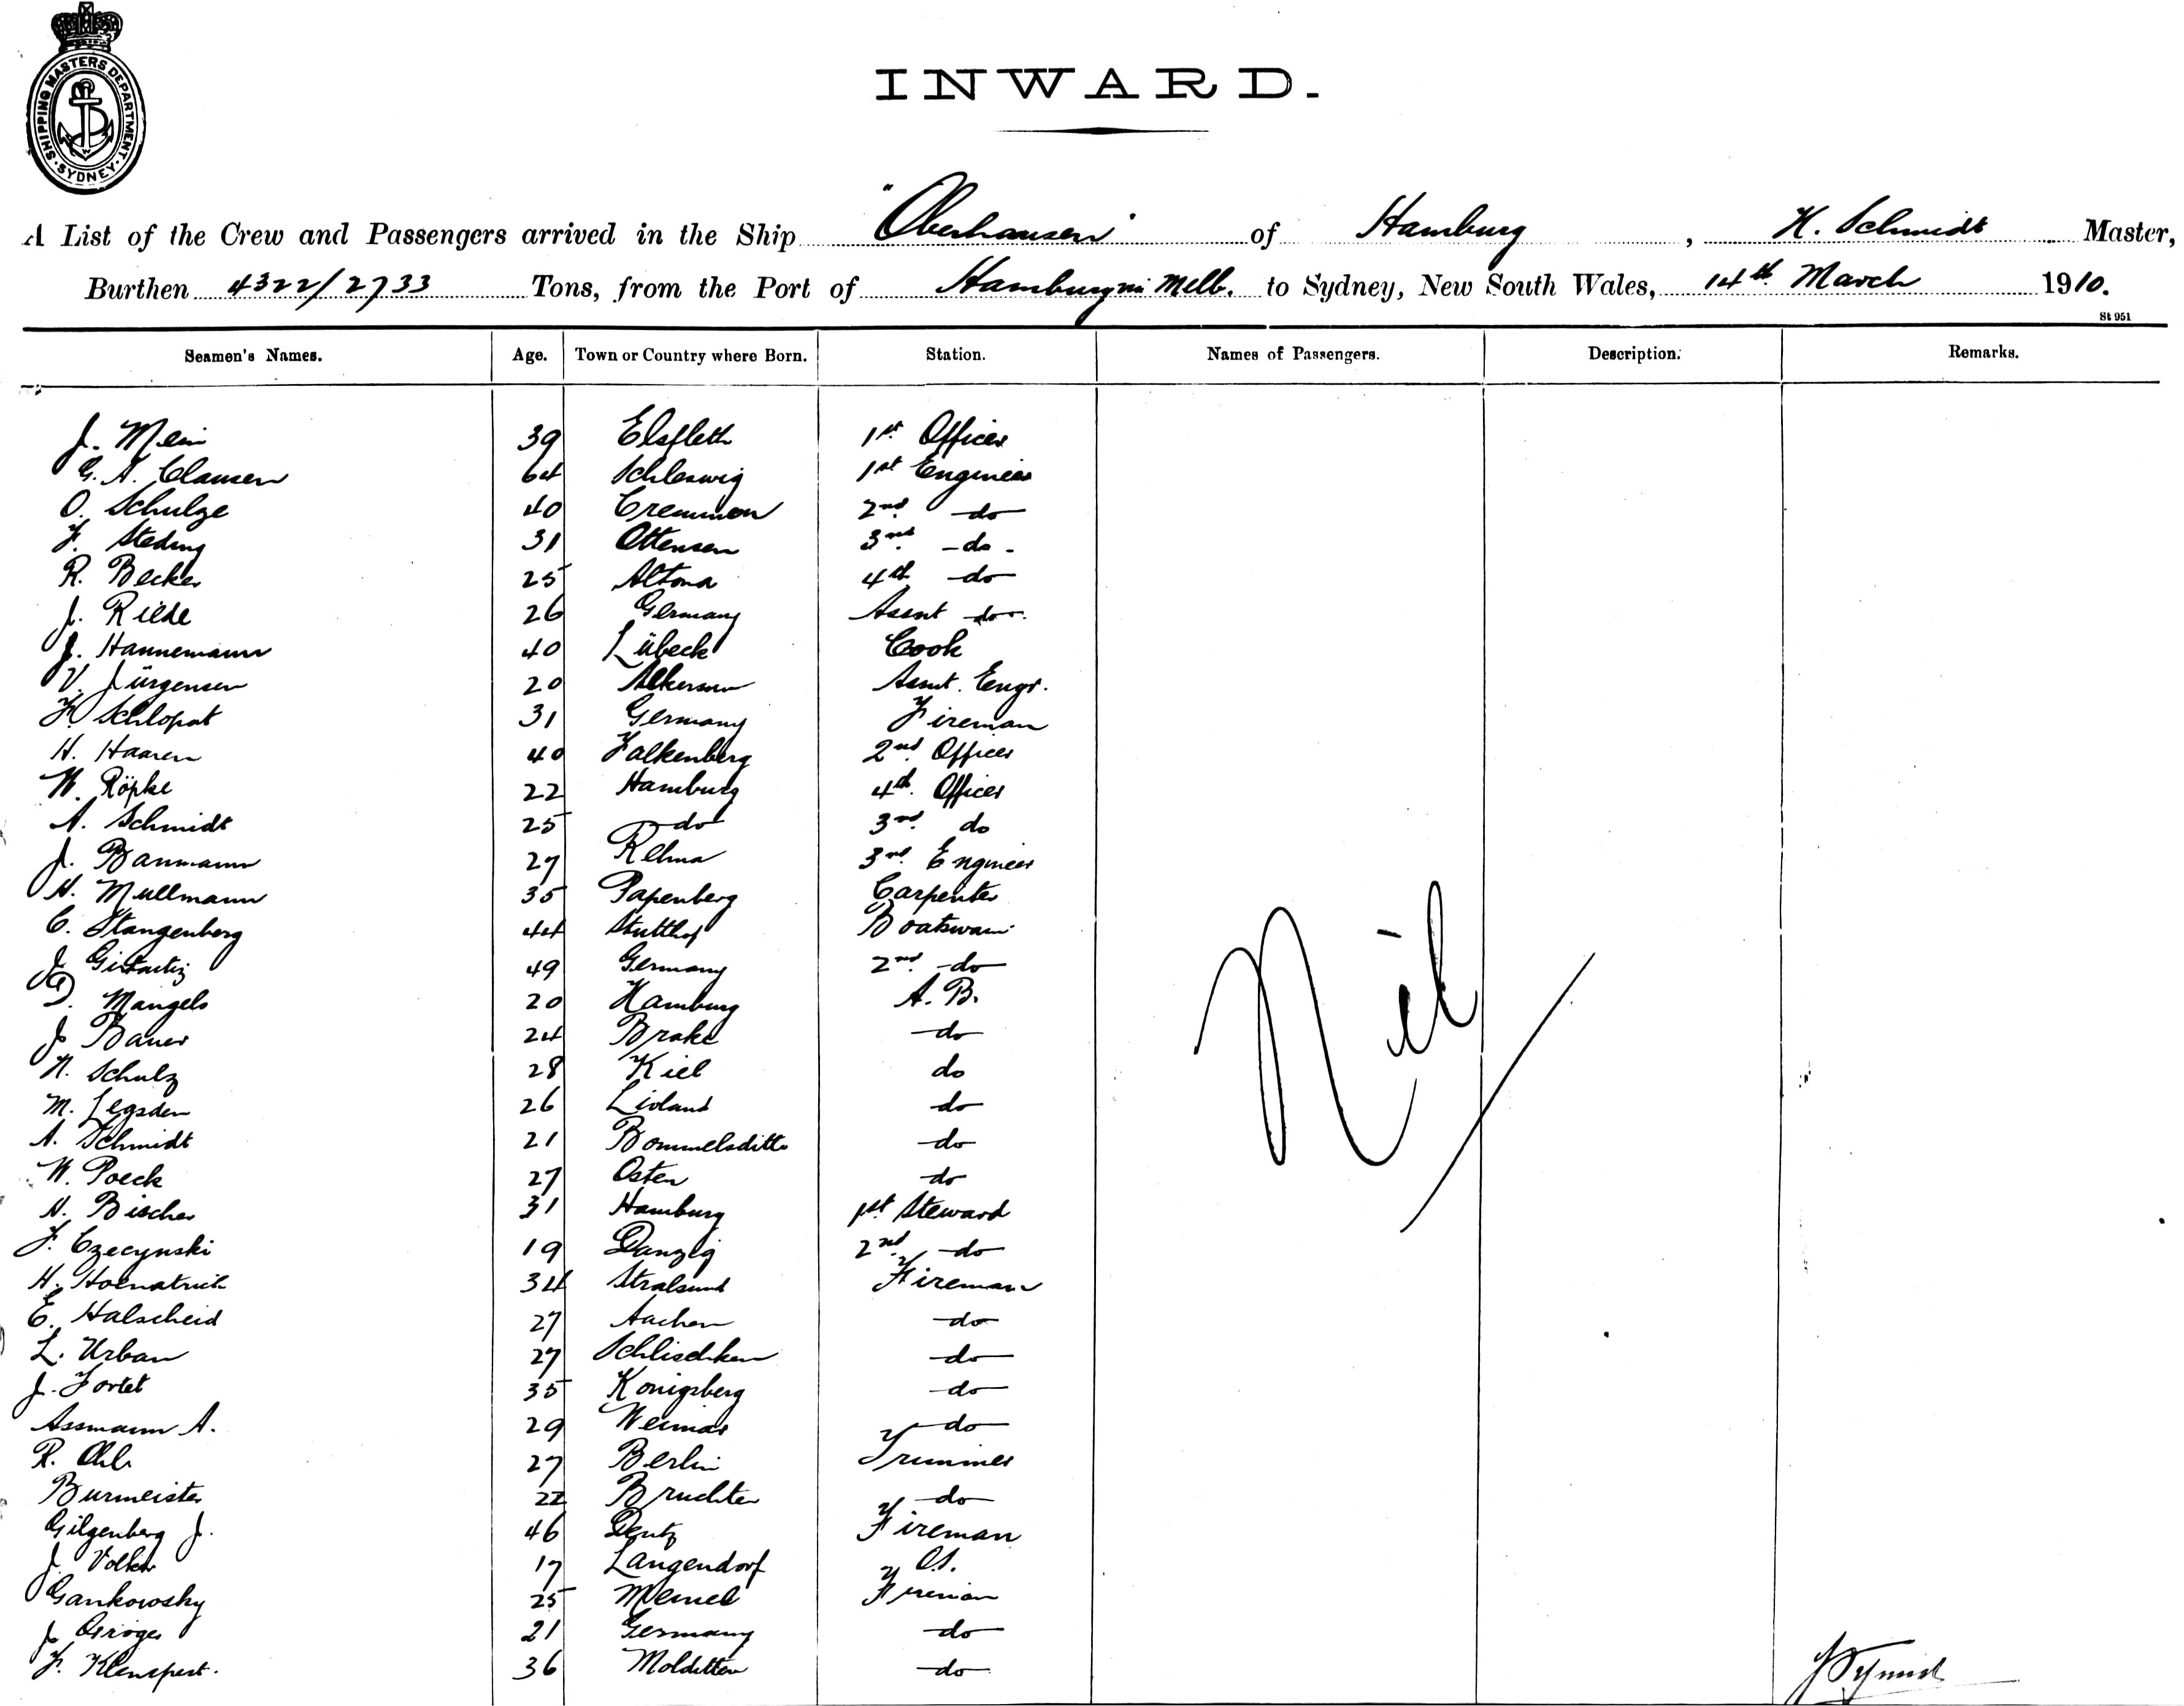 SHIPPING MASTERS DEPARTMENT. SYDNEY.
INWARD.
A List of the Crew and Passengers arrived in the Ship "Oberhausen" of Hamburg, H. Schmidt Master,
Burthen 4322/2733 Tons, from the Port of Hamburg via Melb. to Sydney, New South Wales, 14th March 1910.
St 951
Seamen's Names. Age. Town or Country where Born. Station. Names of Passengers. Description. Remarks.
J. Mein 39 Elsfleth 1st Officer
G. A. Clausen 64 Schleswig 1st Engineer
O. Schulze 40 Cremmon 2nd do
F. Steding 31 Ottensen 3rd - do -
R. Becker 25 Altona 4th do
J. Riede 26 Germany Assnt do
J. Hannemann 40 Lübeck Cook
V. Jürgensen 20 Alkersum Assnt. Engr.
F. Schlopat 31 Germany Fireman
H. Haaren 40 Falkenberg 2nd Officer
W. Röpke 22 Hamburg 4th Officer
A. Schmidt 25 do 3rd do
J. Baumann 27 Rehna 3rd Engineer
H. Mullmann 35 Papenberg Carpenter
C. Stangenberg 44 Stutthof Boatswain
J. 49 Germany 2nd - do
D. Mangels 20 Hamburg A. B.
J. Bauer 24 Brake do
H. Schulz 28 Kiel do
M. Legsden 26 Livland do
A. Schmidt 21 Bommelsditte do
W. Poeck 27 Osten do
H. Bischer 31 Hamburg 1st Steward
F. Czecynski 19 Danzig 2nd do
H. 34 Stralsund Fireman
E. Halscheid 27 Aachen do
L. Urban 27 Schlischken do
J. Fortet 35 Konigsberg do
Assmann A. 29 Weimar do
R. 27 Berlin Trimmer
Burmeister 22 Bruchter do
Gilgenberg J. 46 Deutz Fireman
J. Volker 17 Langendorf O.S.
Gankowsky 25 Memel Fireman
J. Gröger 21 Germany do
F. Klenspert. 36 Molditten do
Nil